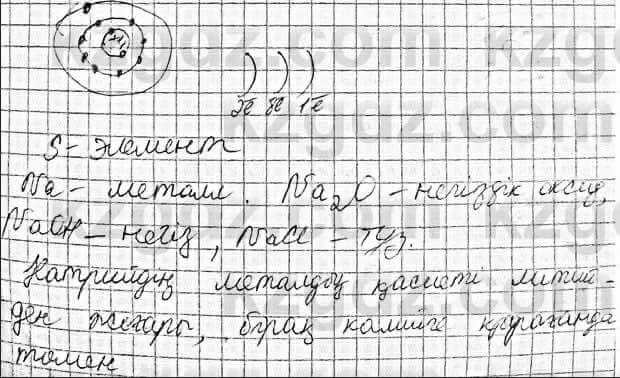 kzgaz.com kzgaz
kzgaz.com
+11
2e 8e 1e
S- элемент
Na - металл. Na2O - негіздік оксид,
NaOH - негіз, NaCl - тұз.
Натрийдің металдық қасиеті литий-
ден жоғары, бірақ калийге қарағанда
төмен